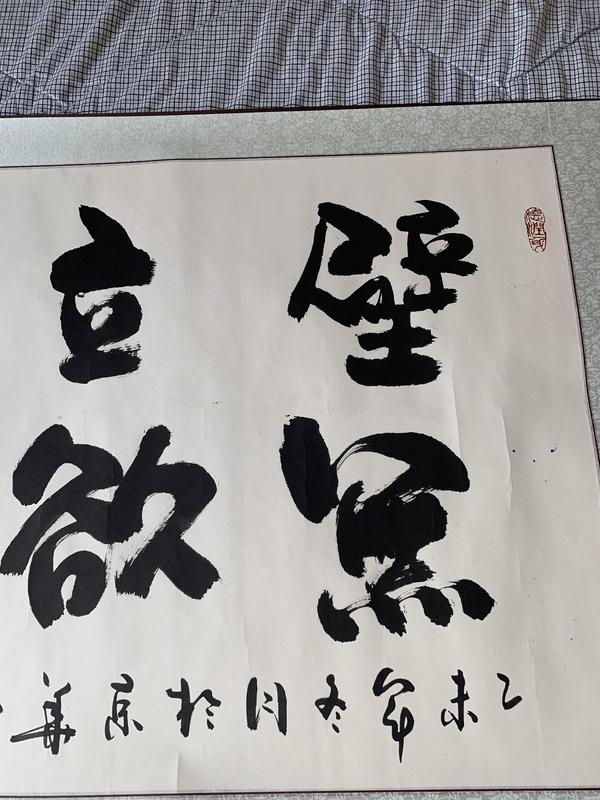 德潤身
壁立
無欲
乙未年冬月於京華